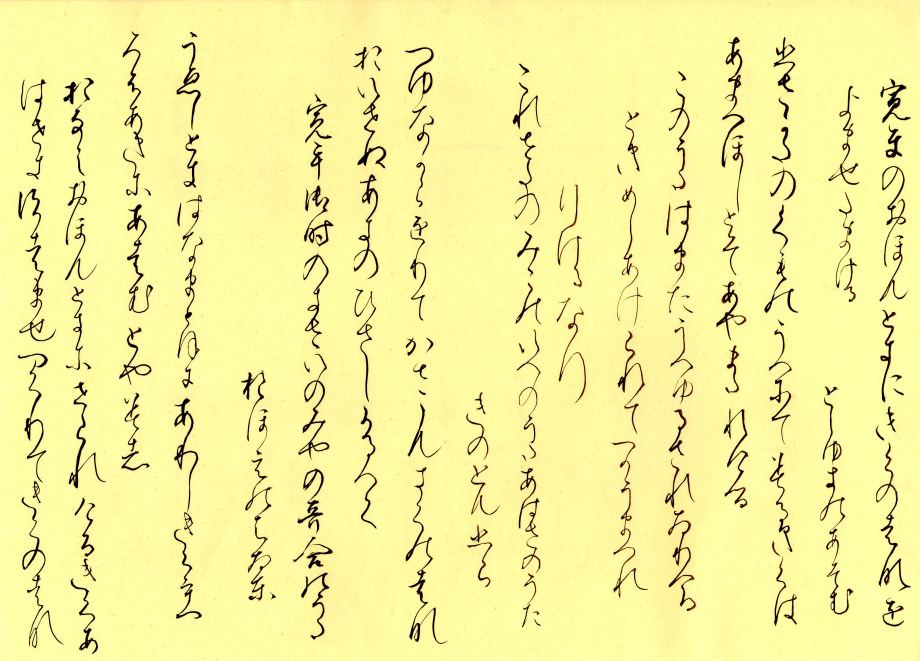 寛平のおほんときにきくのはなを
よませたまひける
としゆきのあそむ
ひさかたのくものうへにてみるきくは
あまつほしとそあやまたれける
このうたはまたうへゆるされさりける
ときめしあけられてつかうまつれ
りけるなり
これさたのみこのいへのうたあはせのうた
きのとんのり
つゆなからをりてかささんきくのはな
おいせぬあきのひさしかるへく
寛平御時のきさいのみやの哥合のうた
おほえのちさと
うゑしときはなまちとほにありしきくうつ
ろふあきにあはむとやみし
おなしおほんときにせられけるきくあ
はせにすはまをつくりてきくのはな